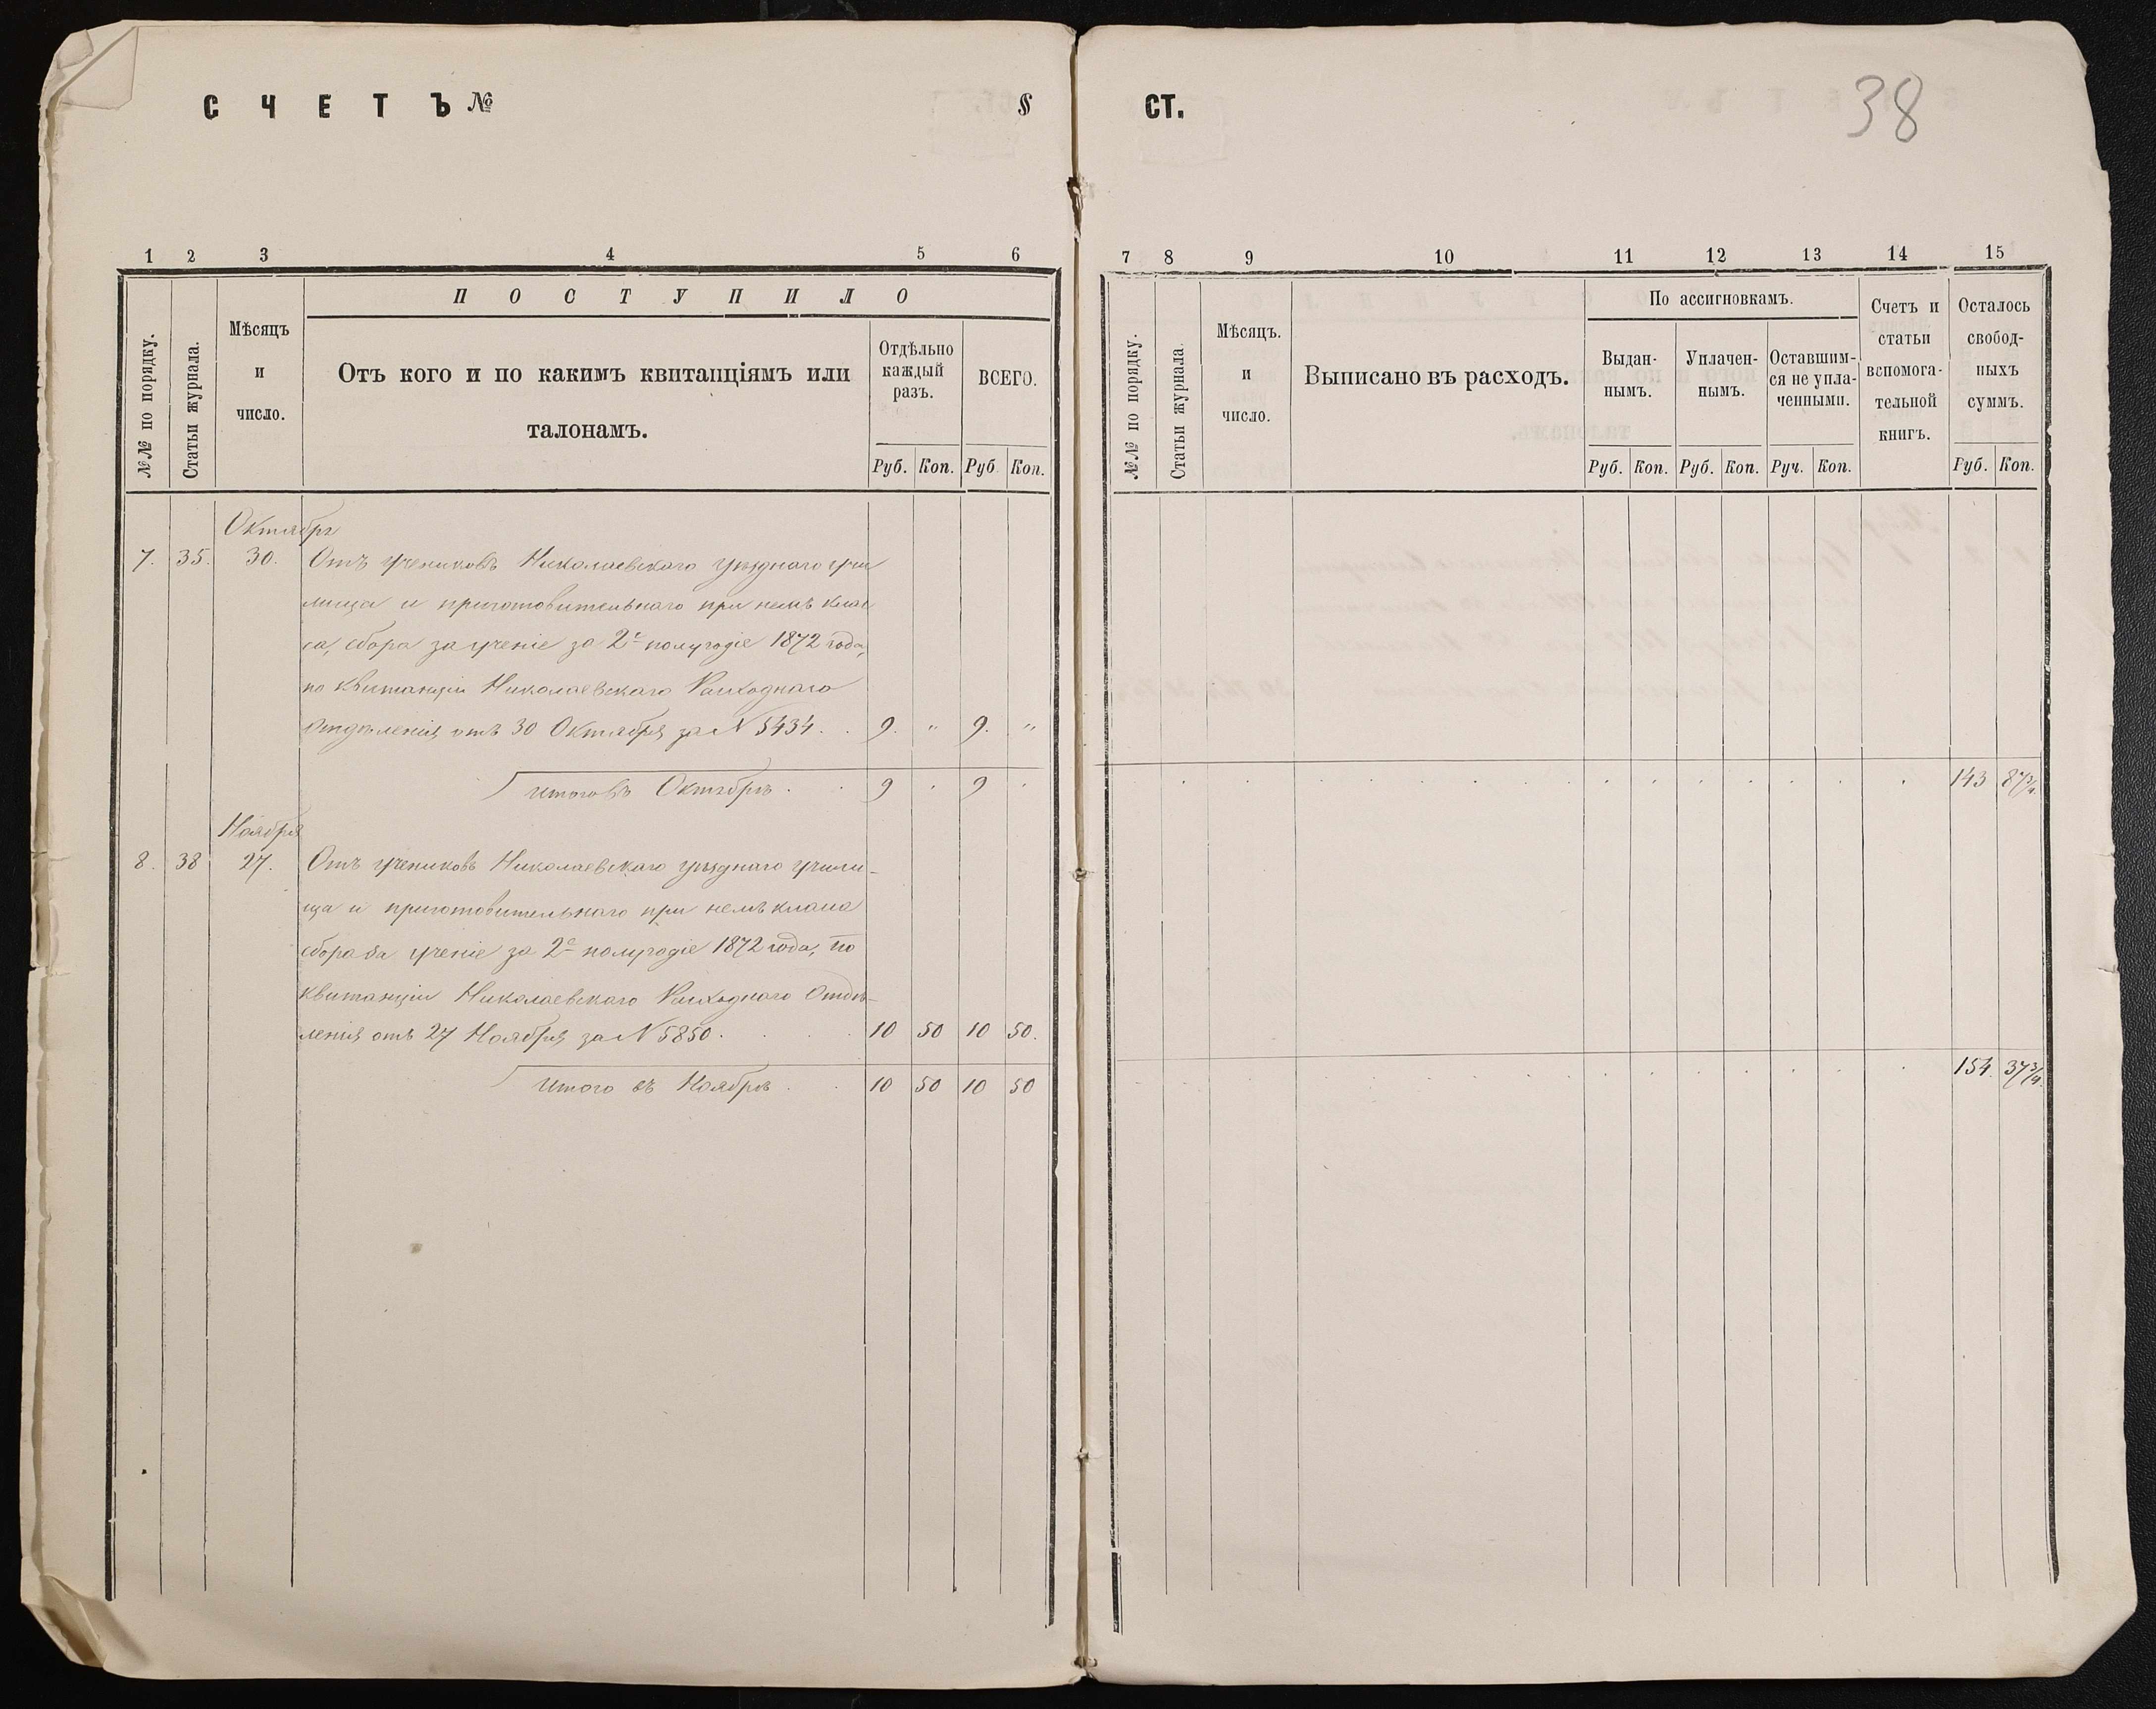 СЧЕТЪ № § СТ. 38
1 2 3 4 5 6
№№ по порядку.
Статьи журнала.
Мѣсяцъ
и
число.
ПОСТУПИЛО
Отъ кого и по какимъ квитанціямъ или
талонамъ.
Отдѣльно
каждый
разъ.
ВСЕГО.
Руб. Коп. Руб. Коп.
Октября
7. 35. 30. Отъ учениковъ Николаевскаго уѣзднаго учи
лища и приготовительнаго при немъ клас
са, сбора за ученіе за 2е полугодіе 1872 года,
по квитанціи Николаевскаго Расходнаго
Отдѣленія отъ 30 Октября за N 5434. . 9. " 9. "
Итого въ Октябрѣ . . 9 . 9 .
Ноября
8. 38 27. Отъ учениковъ Николаевскаго уѣзднаго учили-
ща и приготовительнаго при немъ класса
сбора за ученіе за 2е полугодіе 1872 года, по
квитанціи Николаевскаго Расходнаго Отдѣ-
ленія отъ 27 Ноября за N 5850. . . . 10 50 10 50.
Итого въ Ноябрѣ . . 10 50 10 50
7 8 9 10 11 12 13 14 15
№№ по порядку.
Статьи журнала.
Мѣсяцъ.
и
число.
Выписано въ расходъ.
По ассигновкамъ.
Выдан-
нымъ.
Уплачен-
нымъ.
Оставшим-
ся не упла-
ченными.
Счетъ и
статьи
вспомога-
тельной
книгъ.
Осталось
свобод-
ныхъ
суммъ.
Руб. Коп. Руб. Коп. Руч. Коп. Руб. Коп.
143 87 3/4.
154. 37 3/4.